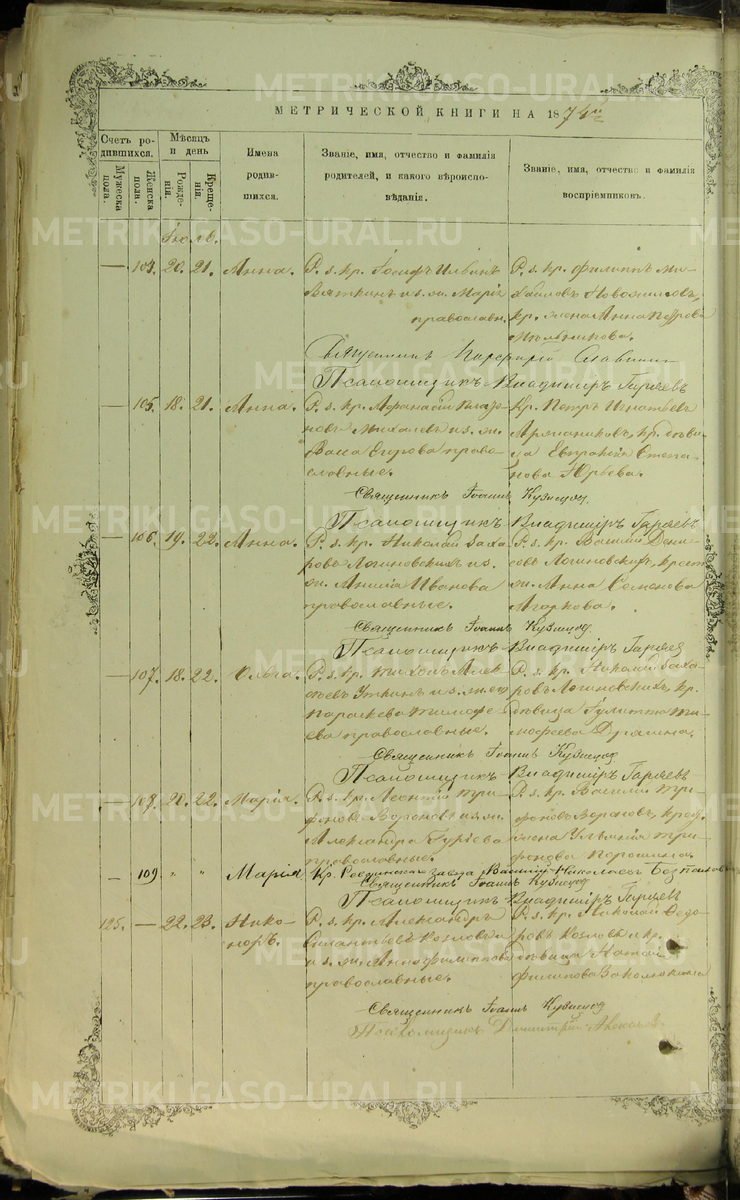 МЕТРИЧЕСКОЙ КНИГИ НА 1874
Счетъ ро-
дившихся.
Мужеска
пола.
Женска
пола.
Мѣсяцъ
и день
Рожде-
нія.
Креще-
нія.
Имена
родив-
шихся.
Званіе, имя, отчество и фамилія
родителей, и какого вѣроиспо-
вѣданія.
Званіе, имя, отчество и фамилія
воспріемниковъ.
Іюль.
— 104. 20. 21. Анна.
Р. з. кр. Іосифъ Ильинъ
Вяткинъ и з. ж. Марія
православн.
Р. з. кр. Филиппъ Ми-
хайловъ Новожиловъ,
кр. жена Анна Петрова
Мельникова.
Священникъ Порфирій Славнинъ
Псаломщикъ Владиміръ Гаряевъ
— 105. 18. 21. Анна.
Р. з. кр. Афанасій
Михалевъ и з. ж.
Васса Егорова право-
славные.
Кр. Петръ Игнатьевъ
кр. дѣви-
ца Евпраксія Степа-
нова Юрьева.
Священникъ Іоаннъ Кузнецов
Псаломщикъ Владиміръ Гаряевъ
— 106. 19. 22. Анна.
Р. з. кр. Николай Заха-
ровъ Логиновскихъ и з.
ж. Анисія Иванова
православные.
Р. з. кр. Василій Дени-
совъ Логиновскихъ, крест.
ж. Анна Семенова
Агаркова.
Священникъ Іоаннъ Кузнецов
Псаломщикъ Владиміръ Гаряев
— 107. 18. 22. Ольга.
Р. з. кр. Тихонъ Алек-
сѣевъ Уткинъ и з. ж. его
Параскева Тимофе-
ева православные.
Р. з. кр. Николай Заха-
ровъ Логиновскихъ, кр.
дѣвица Гулитта Ти-
мофеева
Священникъ Іоаннъ Кузнецов
Псаломщикъ Владиміръ Гаряевъ
— 108. 20. 22. Марія.
Р. з. кр. Леонтій Три-
фоновъ Вороновъ и з. ж.
Александра Гурьева
православные.
Р. з. кр. Василій Три-
фоновъ Вороновъ, крест.
жена Ульянія Три-
фонова Порошина.
— 109 " " Марія
Кр. завода Василій Николаевъ
Священникъ Іоаннъ Кузнецов
Псаломщикъ Владиміръ Гаряевъ
125. — 22. 23. Нико-
норъ.
Р. з. кр. Александръ
Силантьевъ Козловъ
и з. ж. Анна Филиппова
православные.
Р. з. кр. Николай Федо-
ровъ Козловъ и кр.
дѣвица
Филиппова
Священникъ Іоаннъ Кузнецов
Димитрій
METRIKI.GASO-URAL.RU